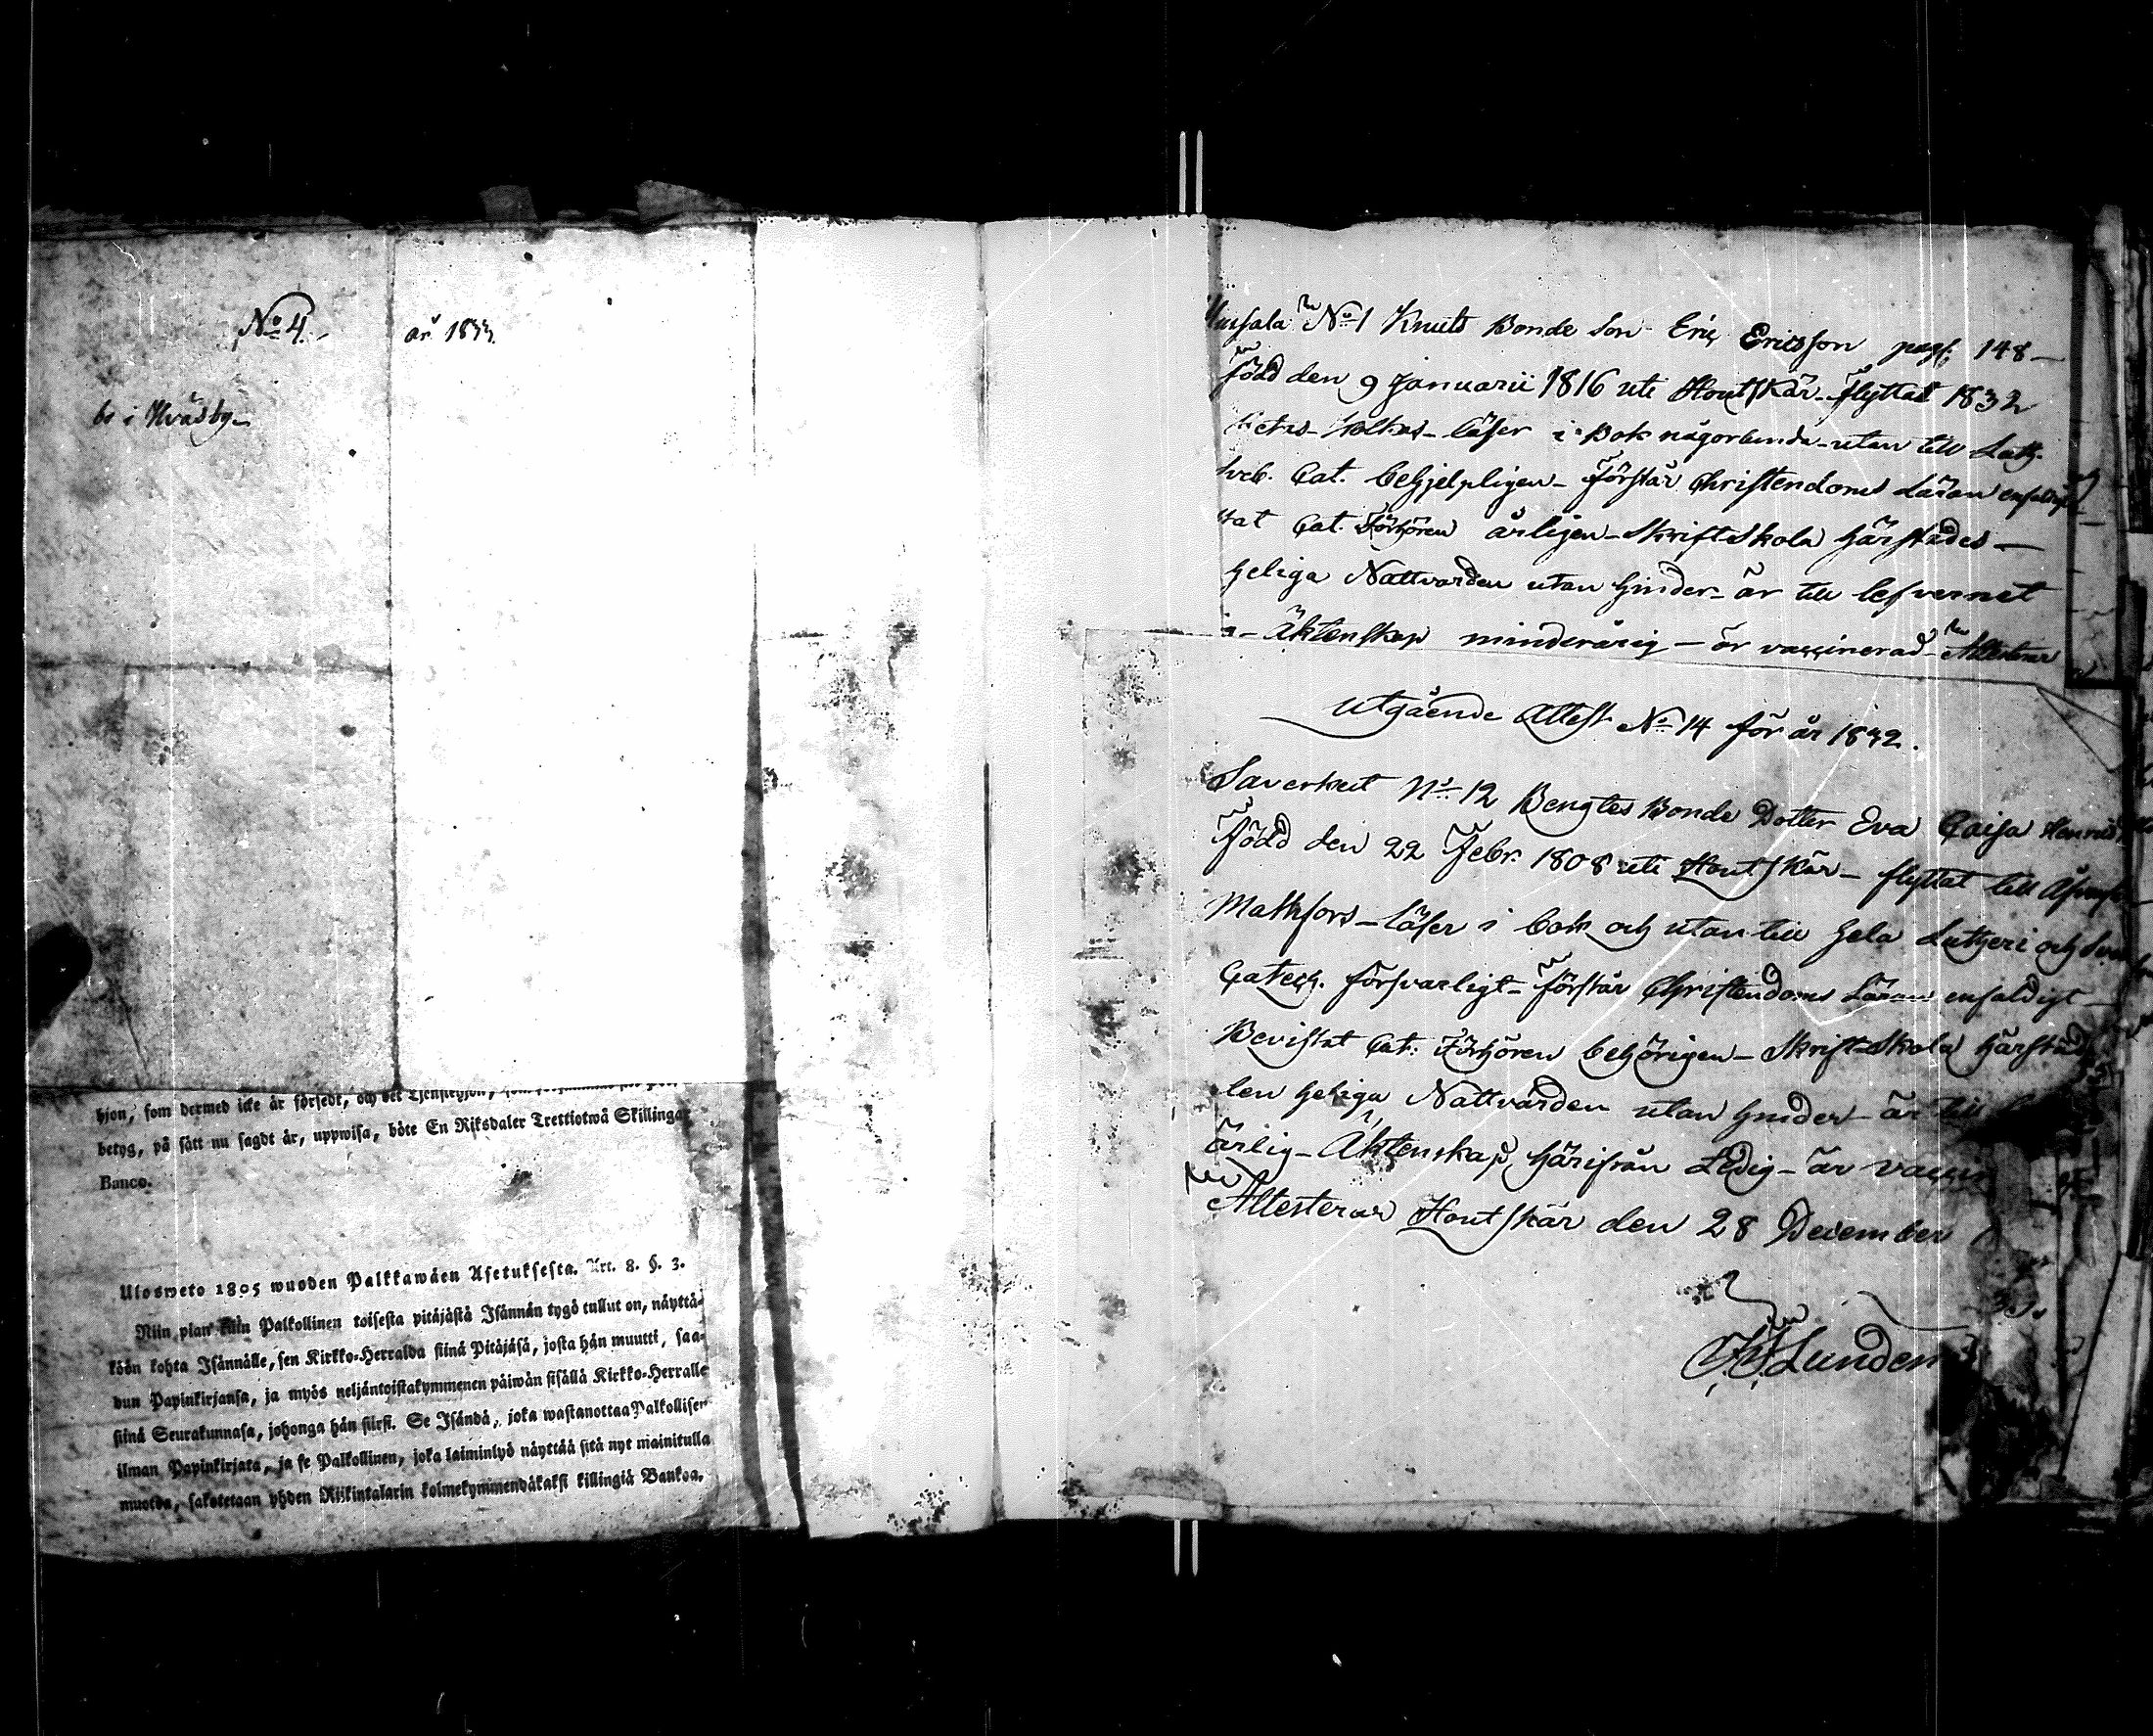 No 4.
år 1833.
bo i Hväsby
hjon, som dermed icke är försedt, och det
betyg, på sätt nu sagdt är, uppwisa, böte En Riksdaler Trettiotwå Skillingar
Banco.
Ulosweto 1805 wuoden Palkkawäen Asetuksesta. Art. 8. §. 3.
Niin pian kuin Palkollinen toisesta pitäjästä Isännän tygö tullut on, näyttä-
köön kohta Isännälle, sen Kirkko-Herralda siinä Pitäjäsä, josta hän muutti, saa-
dun Papinkirjansa, ja myös neljäntoistakymmenen päiwän sisällä Kirkko-Herralle
siinä Seurakunnasa, johonga hän siirsi. Se Isändä, joka wastanottaa Palkollisen
ilman Papinkirjata, ja se Palkollinen, joka laiminlyö näyttää sitä nyt mainitulla
muotoa, sakotetaan yhden Riikintalarin kolmekymmendäkaksi killingiä Bankoa.
No 1 Knuts Bonde Son Eric Ericsson pag. 148
född den 9 Januarii 1816 uti Houtskär flyttat 1832
läser i Bok någorlunda utan till Luth.
Sveb. Cat. behjelpligen Förstår Christendoms Läran enfaldigt
stat Cat. Förhören årligen Skriftskola härstädes
heliga Nattvarden utan hinder är till lefvernet
Äktenskap minderårig är vaccinerad Attesterar
utgående Attest No 14 för år 1832.
Saverkeit No 12 Bengtes Bonde Dotter Eva Caisa
född den 22 Febr. 1808 uti Houtskär flyttat till
läser i bok och utan till hela Lutheri och
Catech. försvarligt förstår Christendoms Läran enfaldigt
Bevistat Cat: Förhören behörigen Skrift-Skola härstädes
den heliga Nattvarden utan hinder är till
ärlig Äktenskap härifrån Ledig är
Attesterar Houtskär den 28 December
Lunden